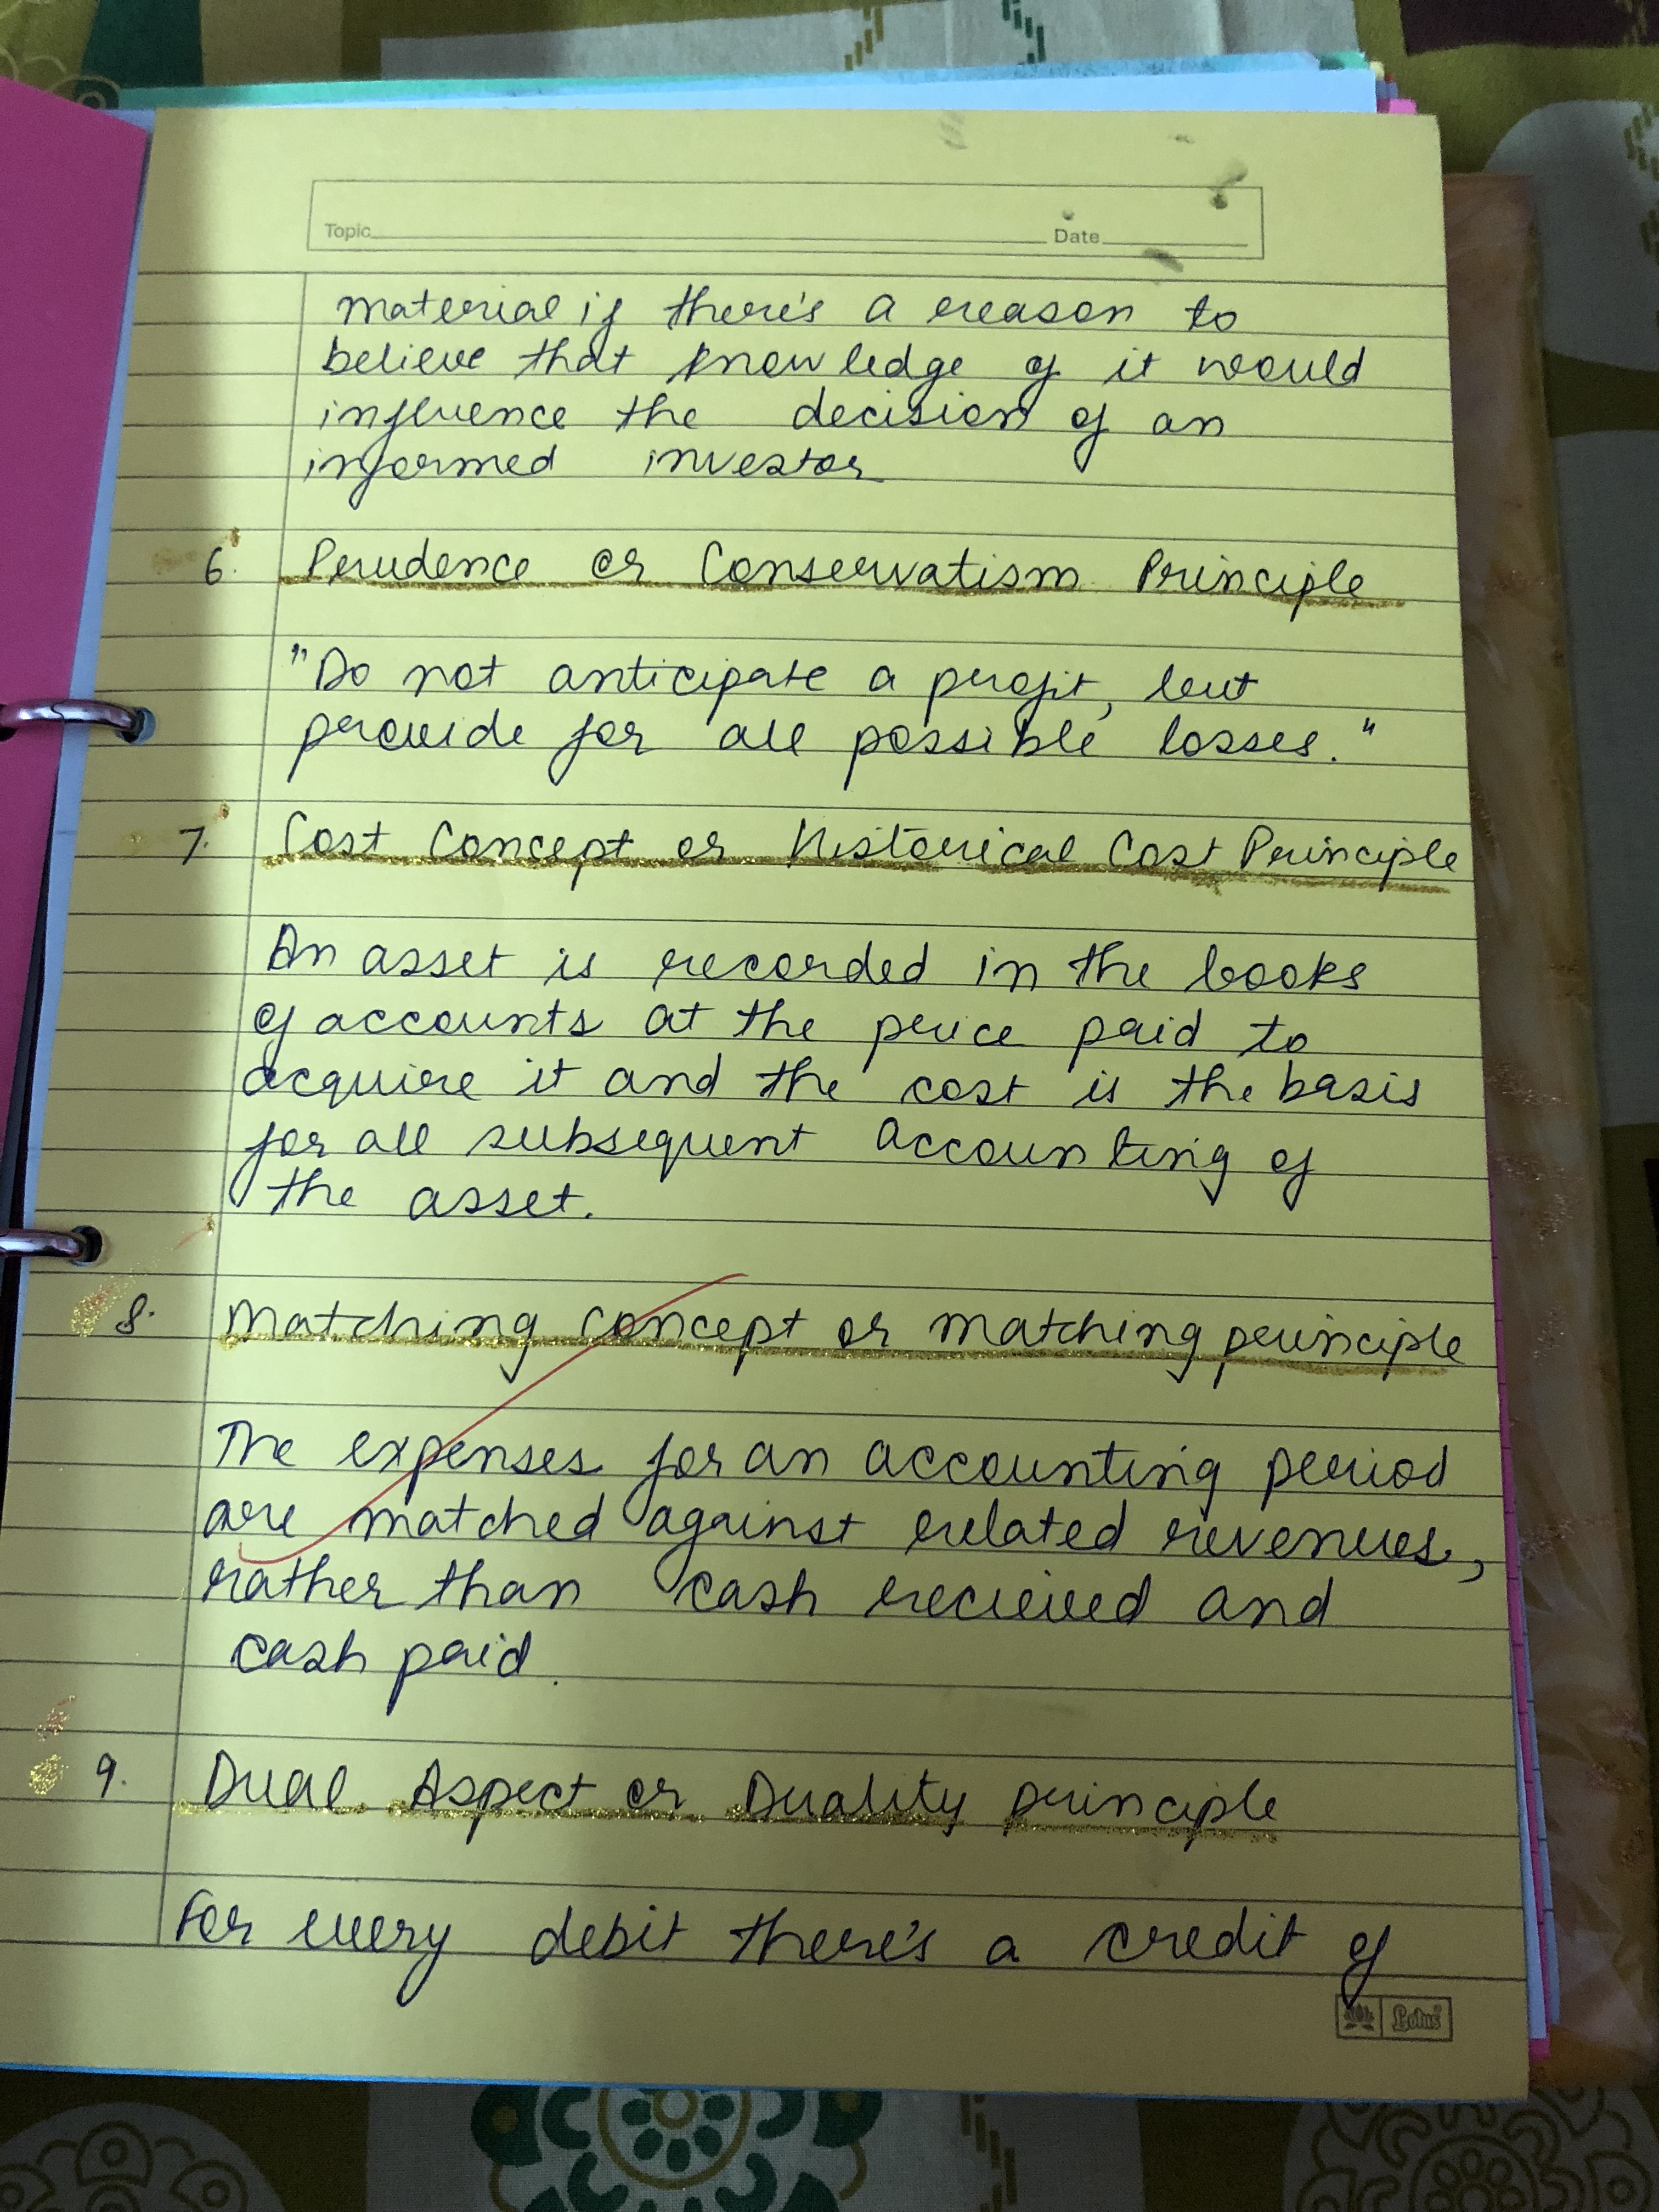 Topic Date
material if there's a reason to
believe that knowledge of it would
influence the decision of an
informed investor
6. Prudence or Conservatism Principle
"Do not anticipate a profit, but
provide for all possible losses."
7. Cost Concept or Historical Cost Principle
An asset is recorded in the books
of accounts at the price paid to
acquire it and the cost is the basis
for all subsequent accounting of
the asset.
8. Matching Concept or matching principle
The expenses for an accounting period
are matched against related revenues,
rather than cash recieved and
cash paid.
9. Dual Aspect or Duality principle
For every debit there's a credit of
Lotus